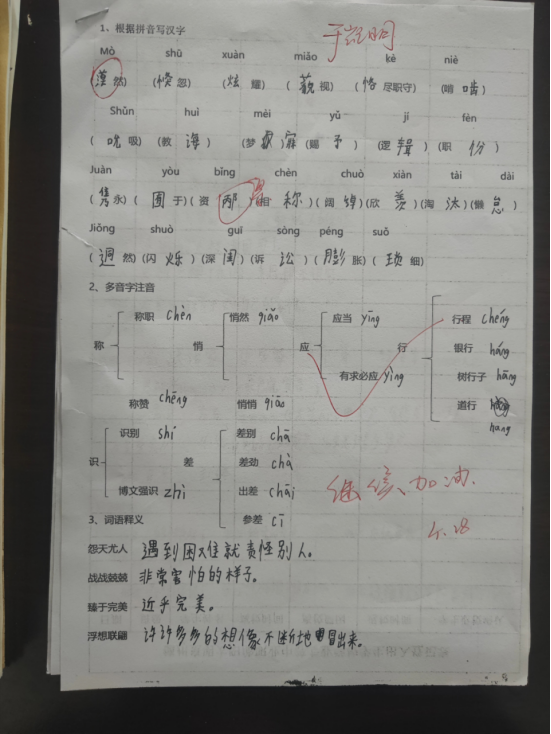 1、根据拼音写汉字
Mò shū xuàn miǎo kè niè
然) (倏 忽) (炫 耀) (藐 视) (恪 尽职守) (啃 啮)
Shǔn huì mèi yǔ jí fèn
(吮 吸) (教 诲) (梦 寐) (赐 予) (逻 辑) (职 份)
Juàn yòu bǐng chèn chuò xiàn tài dài
(隽 永) (囿 于) (资 邴) (相 称) (阔 绰) (欣 羡) (淘 汰) (懒 怠)
Jiǒng shuò guī sòng péng suǒ
(迥 然) (闪 烁) (深 闺) (诉 讼) (膨 胀) (琐 细)
2、多音字注音
称 称职 chèn 称赞 chēng
悄 悄然 qiǎo 悄悄 qiāo
应 应当 yīng 有求必应 yìng
行 行程 chéng 银行 háng 树行子 hāng 道行 hang
识 识别 shí 博文强识 zhì
差 差别 chā 差劲 chà 出差 chāi 参差 cī
继续加油
4.28
3、词语释义
怨天尤人 遇到困难就责怪别人。
战战兢兢 非常害怕的样子。
臻于完美 近乎完美。
浮想联翩 许许多多的想像不断地冒出来。